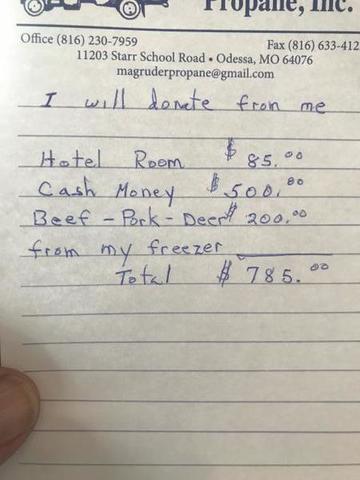 Propane, Inc.
Office (816) 230-7959 Fax (816) 633-412
11203 Starr School Road • Odessa, MO 64076
magruderpropane@gmail.com
I will donate from me
Hotel Room $ 85.00
Cash Money $ 500.00
Beef - Pork - Deer $ 200.00
from my freezer
Total $ 785.00